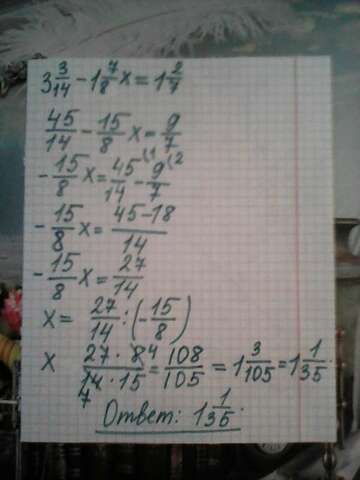 3 3/14 - 1 7/8 x = 1 2/7
45/14 - 15/8 x = 9/7
- 15/8 x = 45/14 (1 - 9/7 (2
- 15/8 x = 45-18/14
- 15/8 x = 27/14
x = 27/14 : (- 15/8)
x 27 · 8 4/14 · 15 7 = 108/105 = 1 3/105 = 1 1/35.
Ответ: 1 1/35.